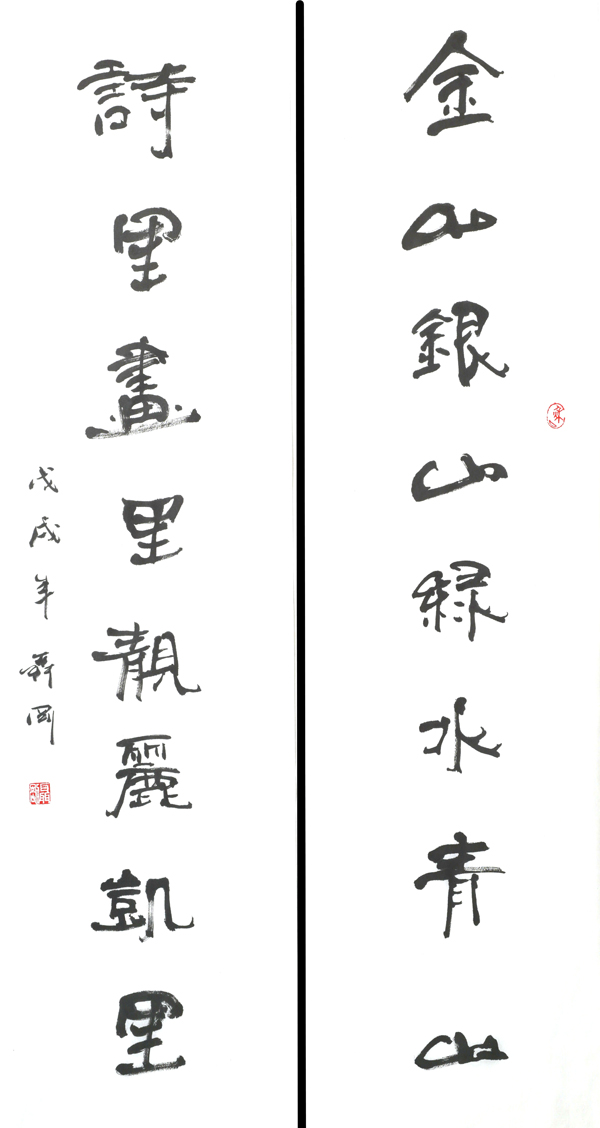 金山銀山綠水青山
詩里畫里靚麗凱里
戊戌年